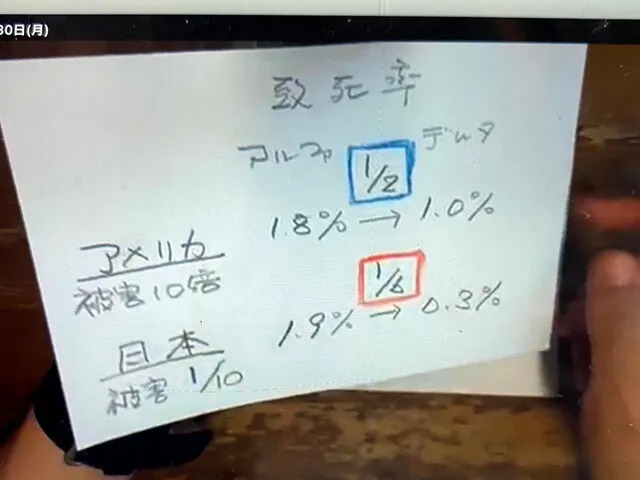 30日(月)
致死率
アルファ デルタ
1/2
アメリカ 1.8% → 1.0%
被害10倍
1/6
日本 1.9% → 0.3%
被害 1/10